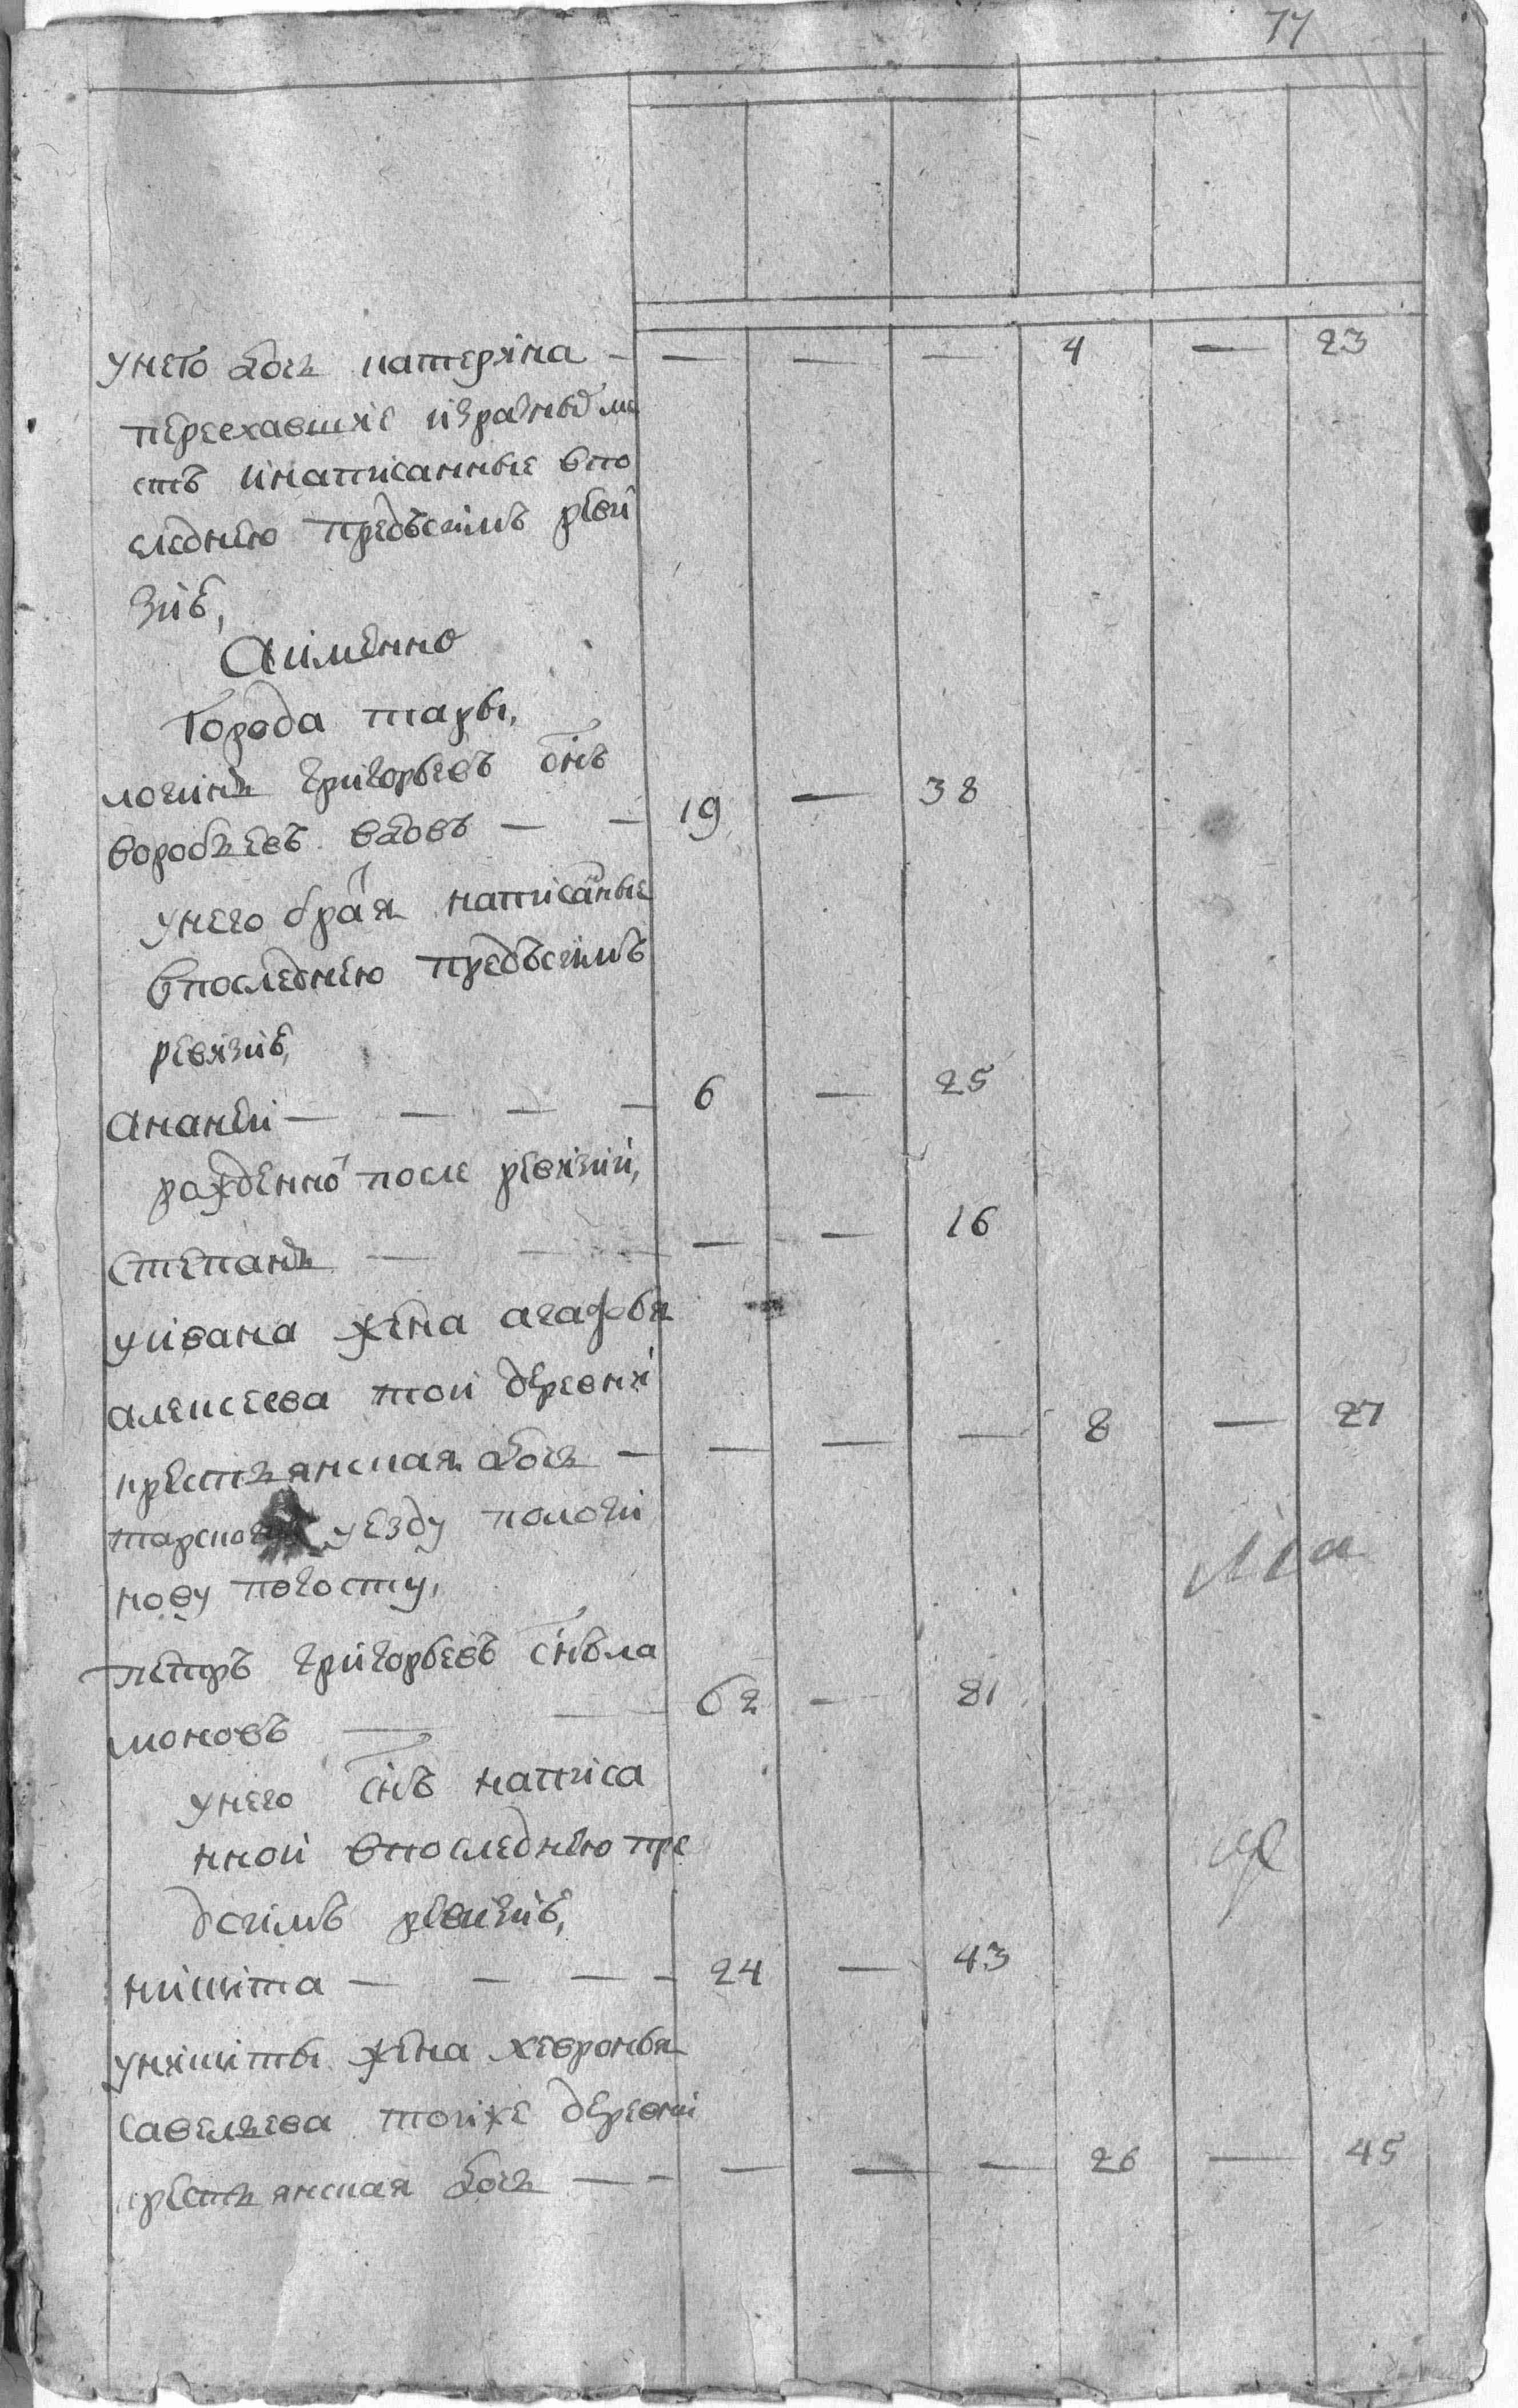 77
унего дочь катерина — — — — 4 — 23
переехавшие изразныхъ ме
стъ инаписанные впо
следнюю предъсимъ реви
зию,
Аименно
Города тары,
логинъ григорьевъ снъ
воробьевъ вдовъ — — 19 — 38
унего братья написанные
впоследнюю предъсимъ
ревизию,
Ананеи — — — — 6 — 25
рожденной после ревизии,
Степанъ — — — — — 16
уивана жена агафья
алексеева тои деревни
крестьянская дочь — — — — 8 — 27
тарского уезду
нову погосту,
петръ григорьевъ снъ ма
моновъ — — 62 — 81
унего снъ написа
нной впоследнюю пре
дсимъ ревизию,
никита — — — — 24 — 43
уникиты жена хевронья
савельева тоиже деревни
крестьянская дочь — — — — — 26 — 45